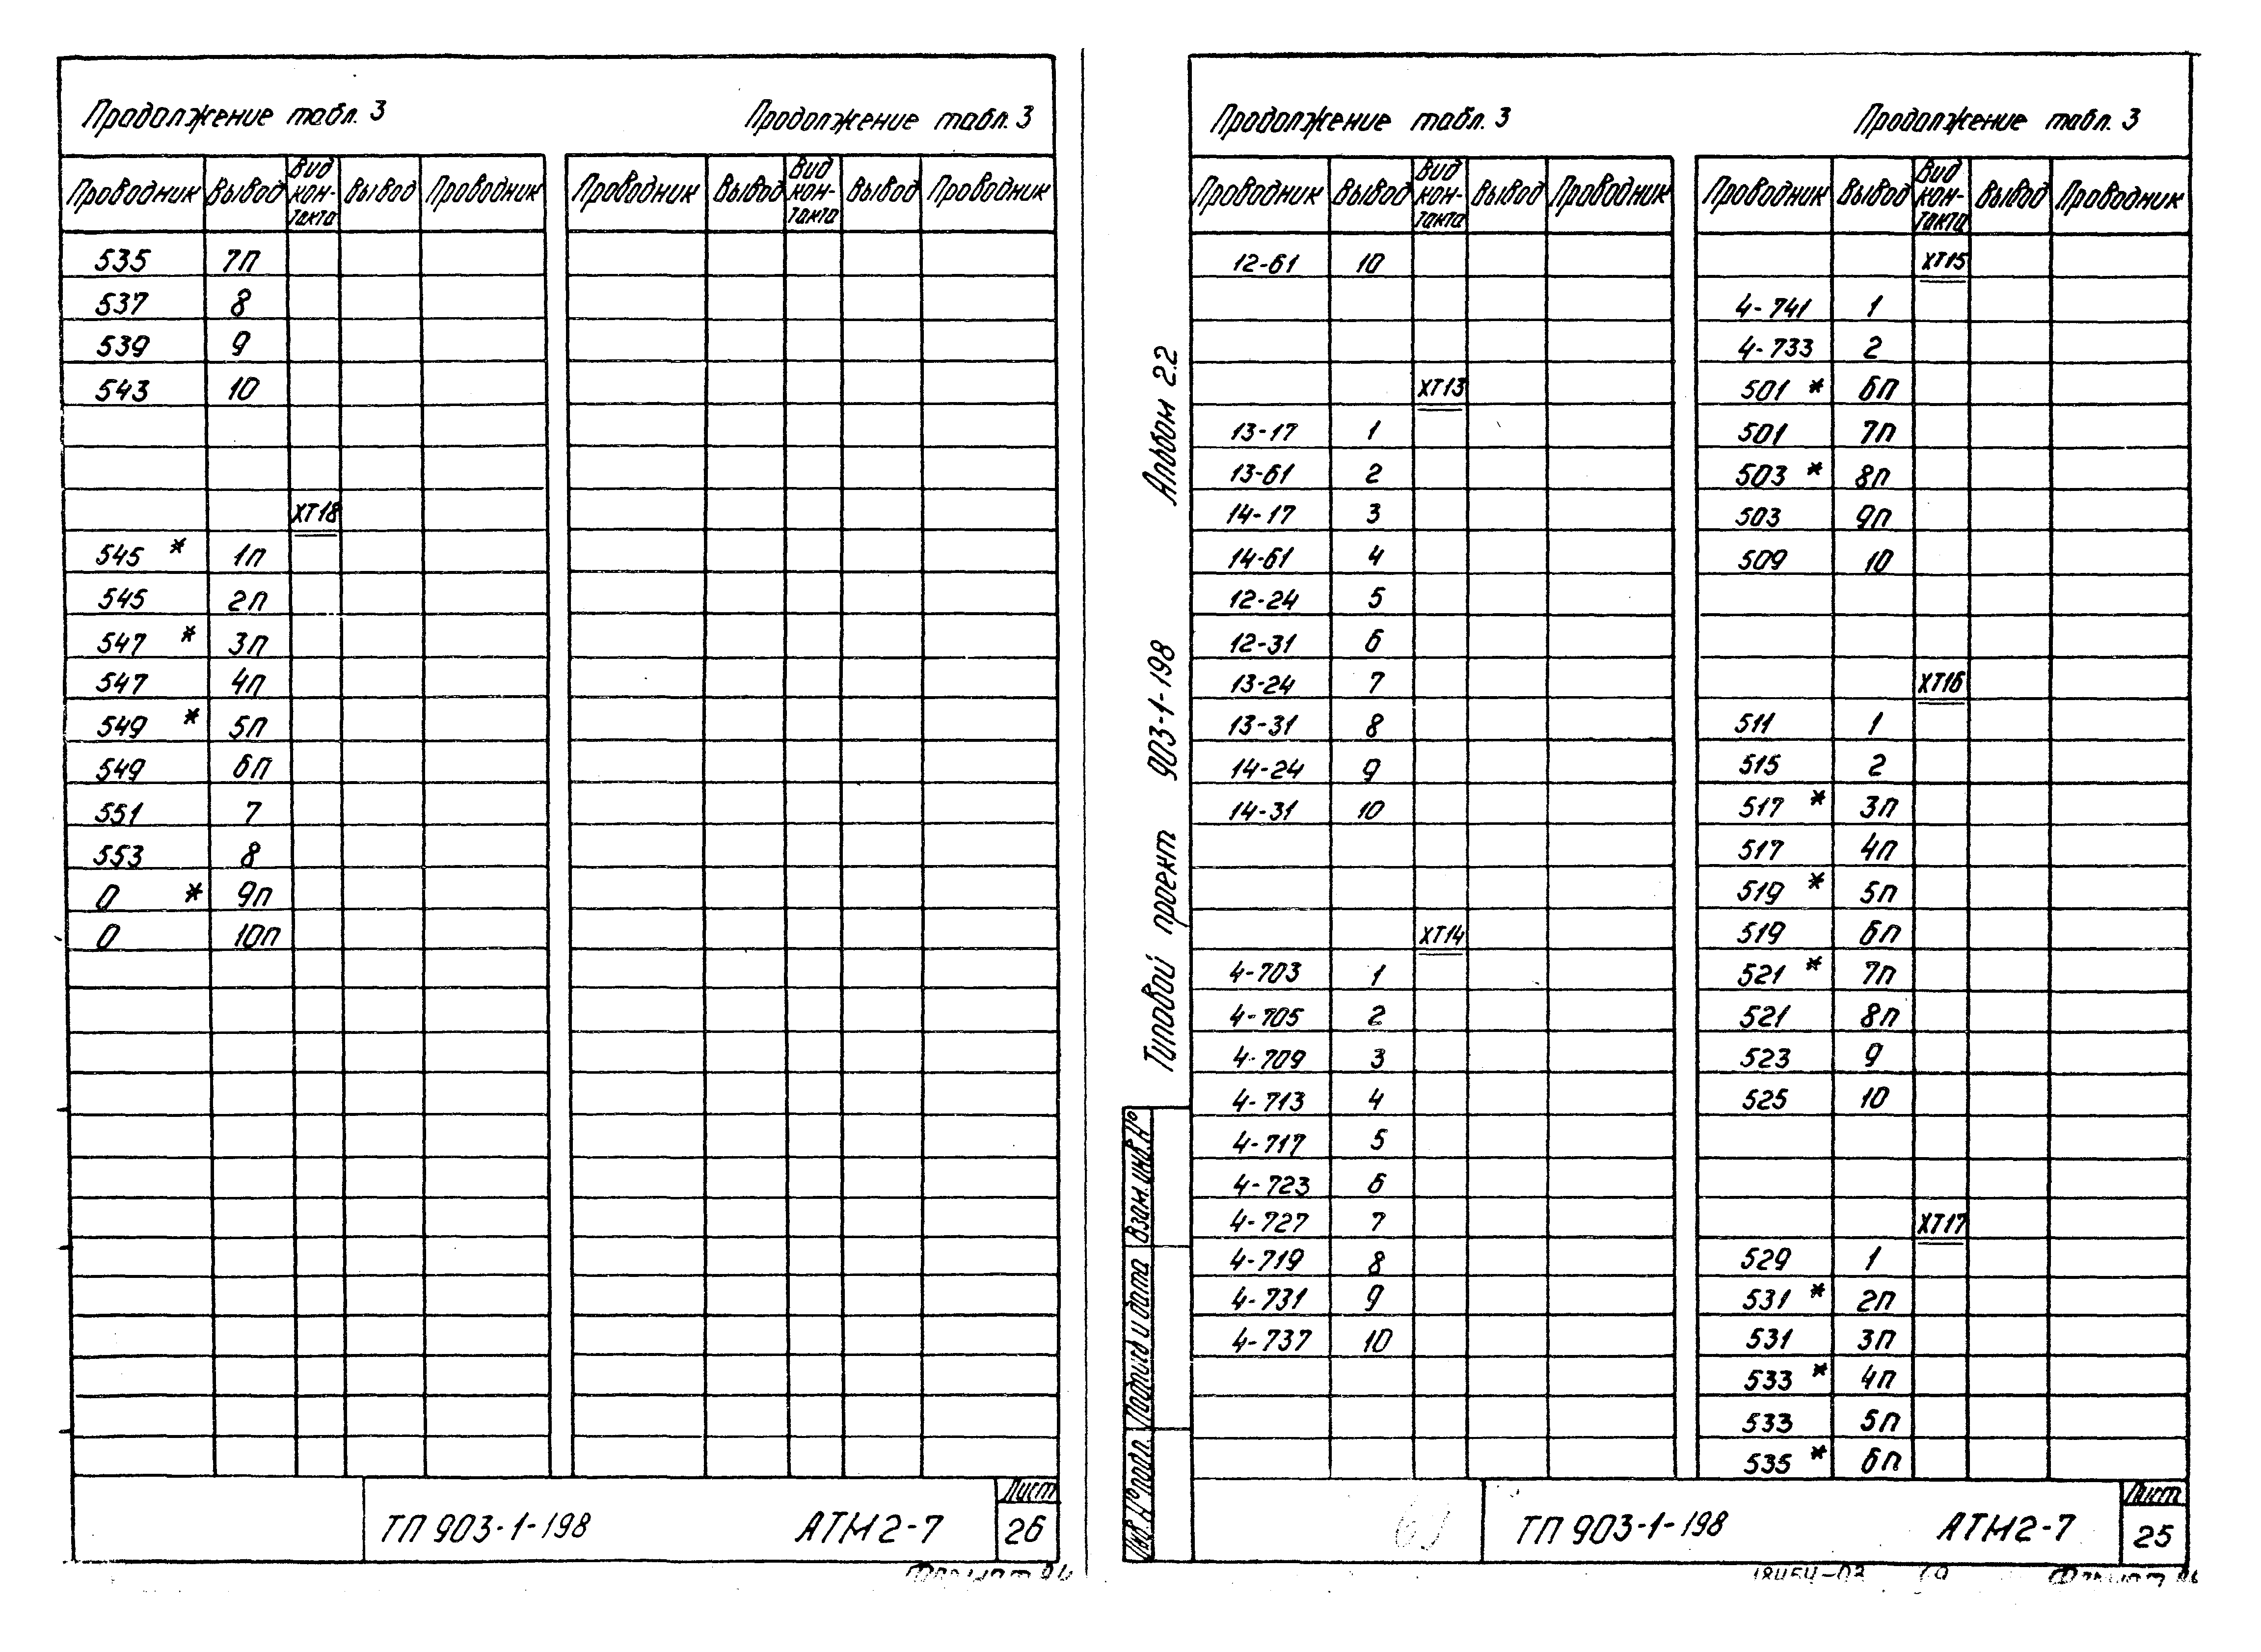 Продолжение табл. 3
Продолжение табл. 3
Проводник Вывод Вид кон-такта Вывод Проводник
Проводник Вывод Вид кон-такта Вывод Проводник
535 7п
537 8
539 9
543 10
ХТ18
545 * 1п
545 2п
547 * 3п
547 4п
549 * 5п
549 6п
551 7
553 8
0 * 9п
0 10п
ТП 903-1-198 АТМ2-7
Лист
26
Альбом 2.2
Типовой проект 903-1-198
Взам. инв. №
Подпись и дата
Инв. № подл.
Продолжение табл. 3
Продолжение табл. 3
Проводник Вывод Вид кон-такта Вывод Проводник
12-61 10
ХТ13
13-17 1
13-61 2
14-17 3
14-61 4
12-24 5
12-31 6
13-24 7
13-31 8
14-24 9
14-31 10
ХТ14
4-703 1
4-705 2
4-709 3
4-713 4
4-717 5
4-723 6
4-727 7
4-719 8
4-731 9
4-737 10
Проводник Вывод Вид кон-такта Вывод Проводник
ХТ15
4-741 1
4-733 2
501 * 6п
501 7п
503 * 8п
503 9п
509 10
ХТ16
511 1
515 2
517 * 3п
517 4п
519 * 5п
519 6п
521 * 7п
521 8п
523 9
525 10
ХТ17
529 1
531 * 2п
531 3п
533 * 4п
533 5п
535 * 6п
ТП 903-1-198 АТМ2-7
Лист
25